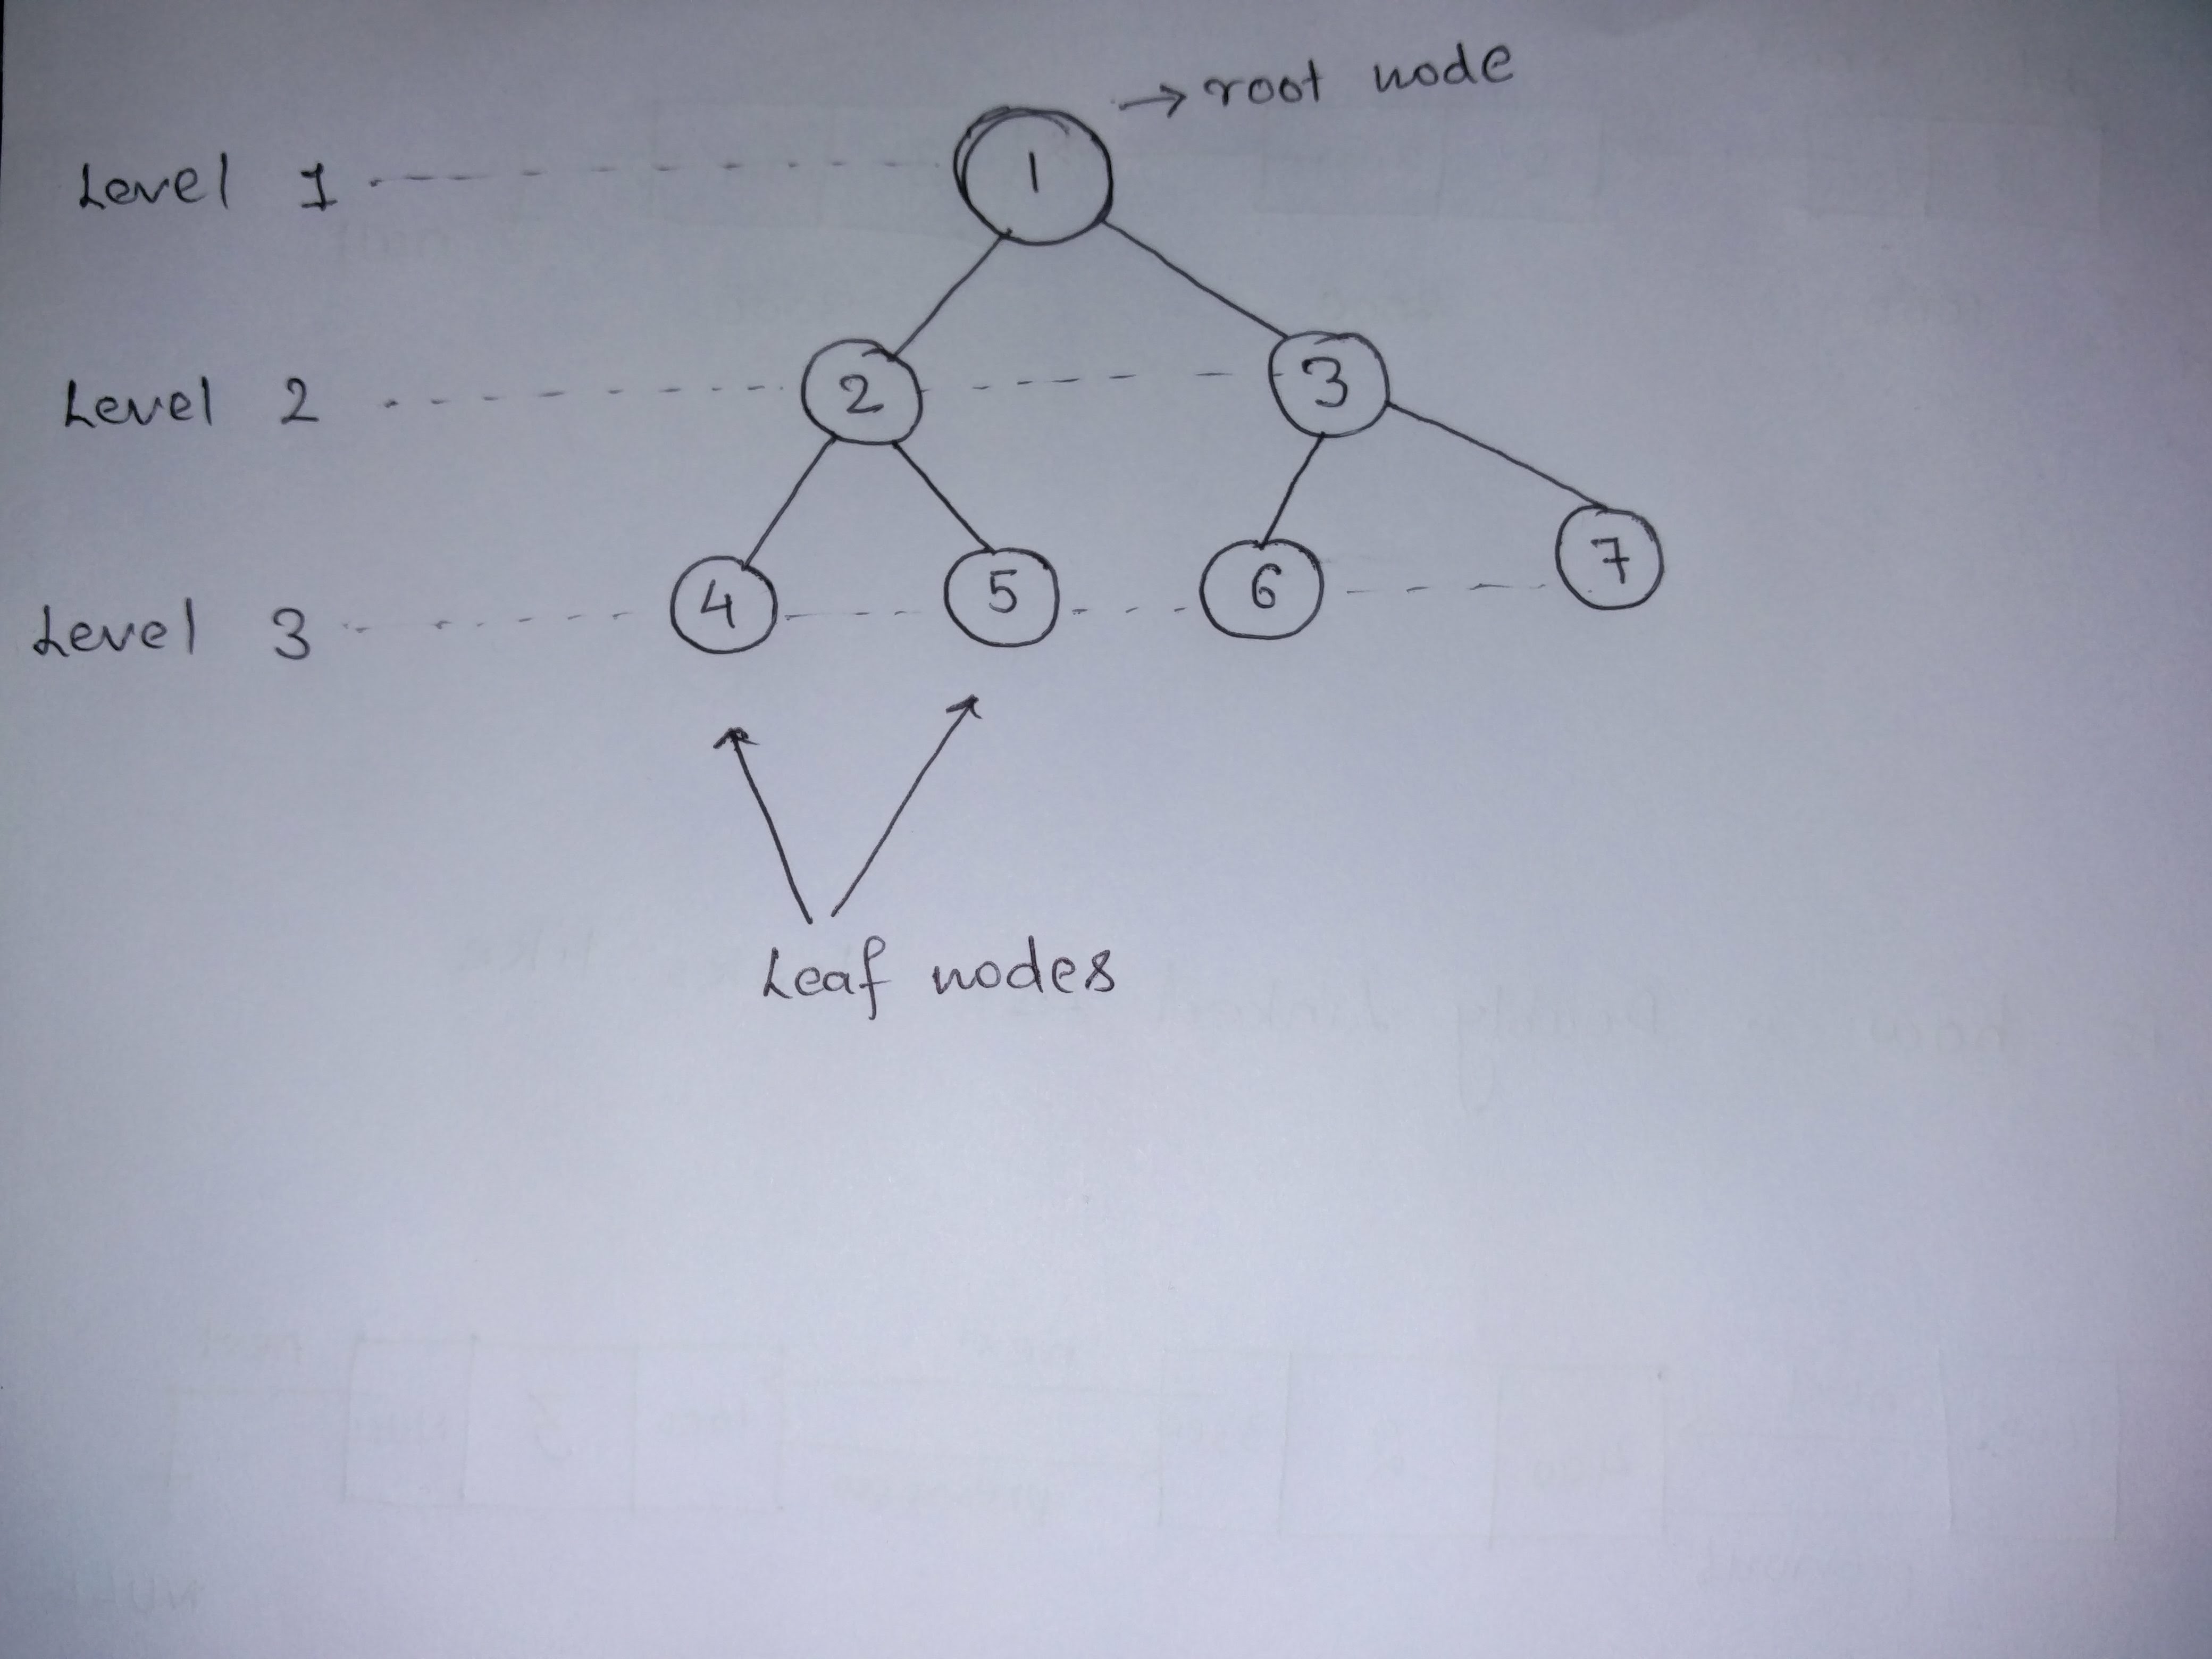 → root node
Level 1 1
Level 2 2 3
Level 3 4 5 6 7
Leaf nodes